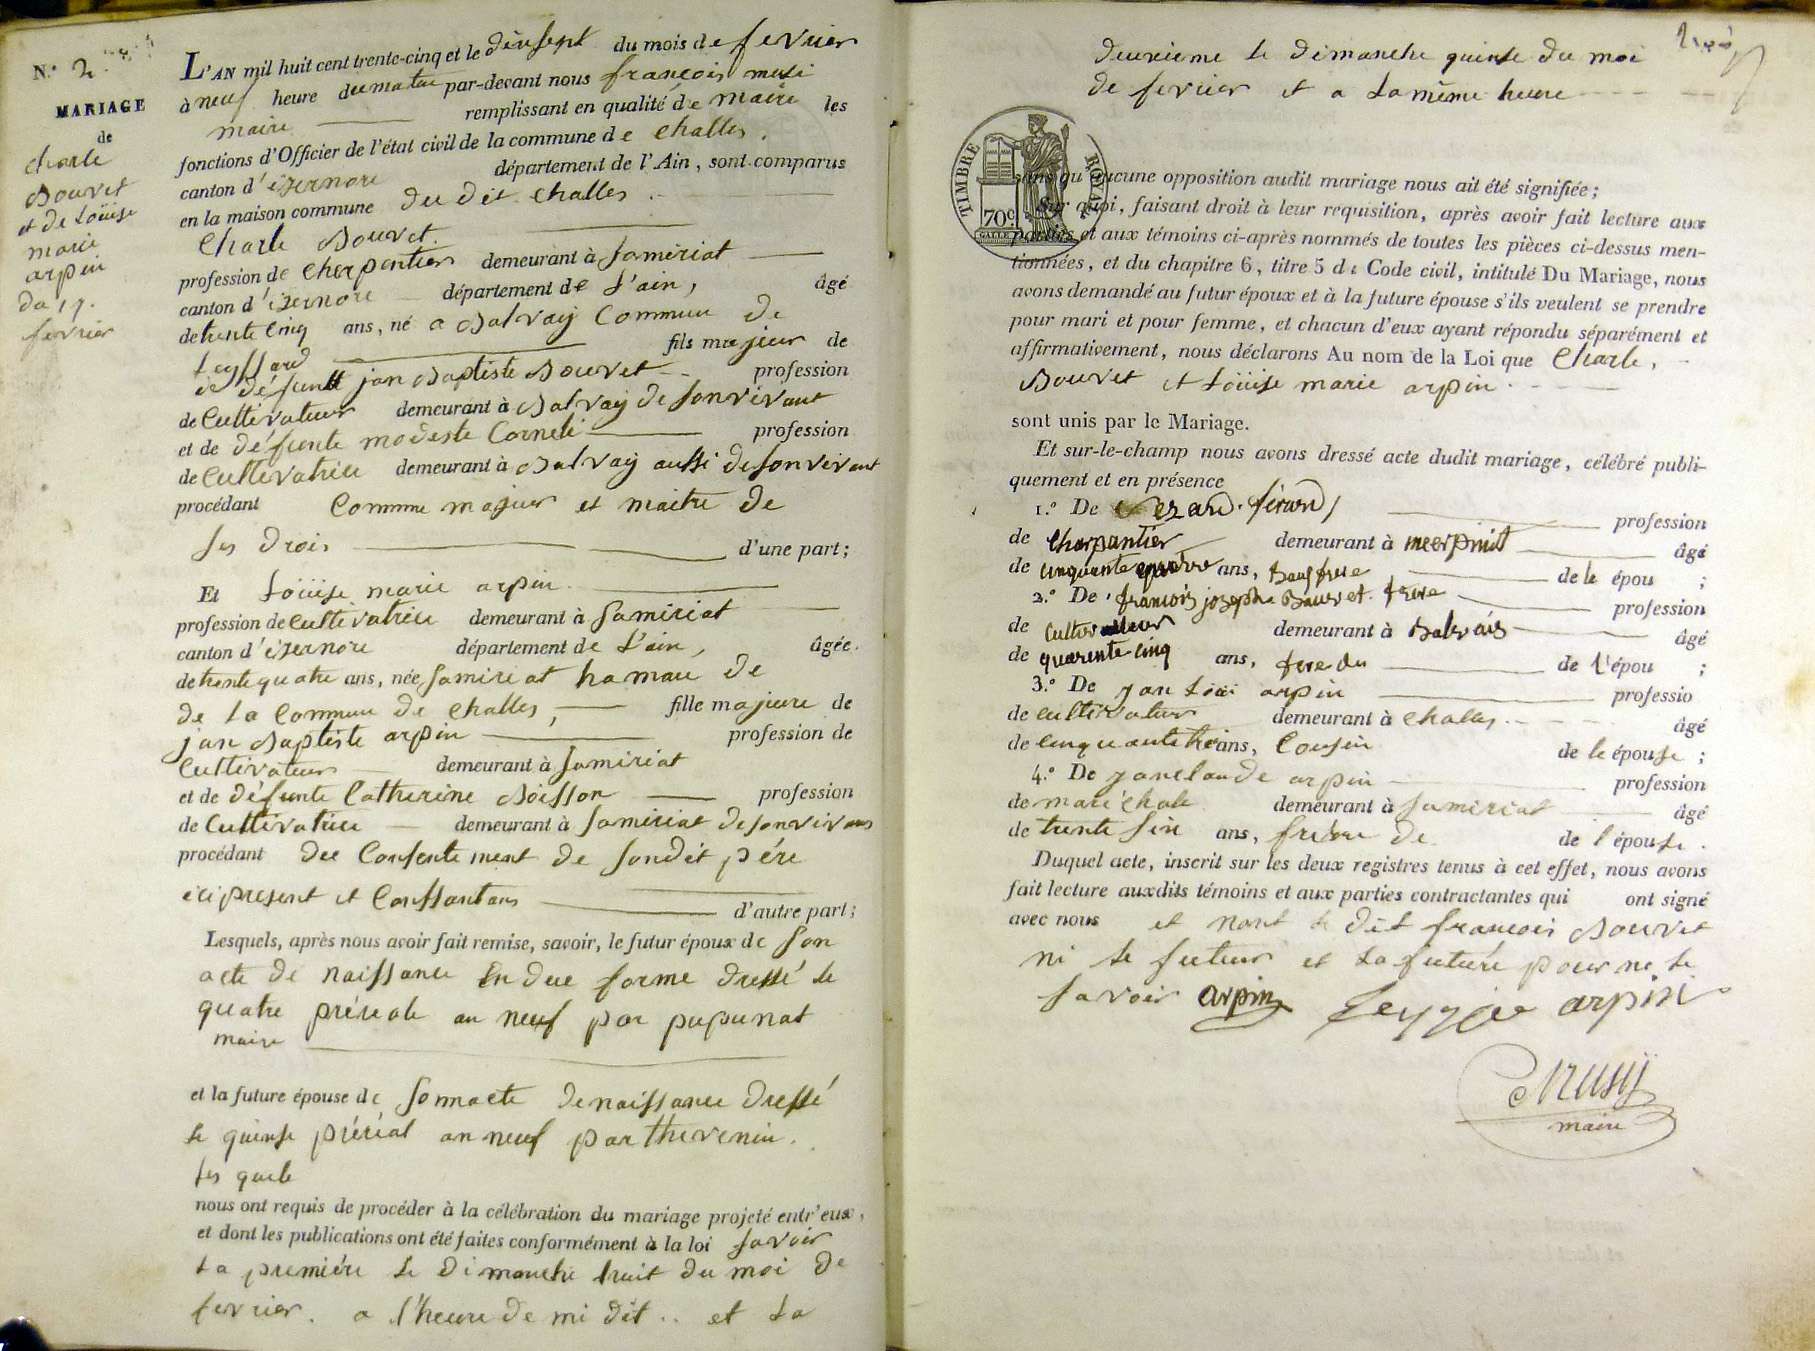 N.° 2
MARIAGE
de
charle
Bouvet
et de Loüise
marie
arpin
du 17.
fevrier
L'AN mil huit cent trente-cinq et le dixsept du mois de fevrier
à neuf heure du matin par-devant nous françois musi
maire remplissant en qualité de maire les
fonctions d'Officier de l'état civil de la commune de challes.
canton d'izernore département de l'Ain, sont comparus
en la maison commune du dit challes
Charle Bouvet.
profession de cherpentier demeurant à Samiriat
canton d'izernore département de L'ain, âgé
de trente cinq ans, né a Balvay Commune de
Leyssard fils majeur de
de défunt jan Baptiste Bouvet profession
de Cultivateur demeurant à Balvay de sonvivant
et de défunte modeste Corneli profession
de Cultivatrice demeurant à Balvay aussi de sonvivant
procédant Comme majeur et maitre de
ses drois d'une part;
Et Loüise marie arpin
profession de cultivatrice demeurant à Samiriat
canton d'izernore département de L'ain, âgée.
de trente quatre ans, née Samiriat hamau de
de la Commune de challes, fille majeure de
jan Baptiste arpin profession de
Cultivateur demeurant à Samiriat
et de défunte Catherine Boisson profession
de Cultivatrice demeurant à Samiriat de sonvivans
procédant du Consentement de sondit pére
ici present et Conssantans d'autre part;
Lesquels, après nous avoir fait remise, savoir, le futur époux de son
acte de naissance en due forme dressé le
quatre préreale an neuf par pupunat
maire
et la future épouse de sonnacte denaissance dressé
le quinse préreal an neuf par thevenin.
les quele
nous ont requis de procéder à la célébration du mariage projeté entr'eux,
et dont les publications ont été faites conformément à la loi savoir
La premiére le dimanche huit du moi de
fevrier. a l'heure de mi dit .. et La
deuxieme le dimanche quinse du moi
de fevrier et a Lamême heure
TIMBRE ROYAL
70c
sans qu'aucune opposition audit mariage nous ait été signifiée;
Sur quoi, faisant droit à leur requisition, après avoir fait lecture aux
parties et aux témoins ci-après nommés de toutes les pièces ci-dessus men-
tionnées, et du chapitre 6, titre 5 du Code civil, intitulé Du Mariage, nous
avons demandé au futur époux et à la future épouse s'ils veulent se prendre
pour mari et pour femme, et chacun d'eux ayant répondu séparément et
affirmativement, nous déclarons Au nom de la Loi que Charle,
Bouvet et Loüise marie arpin
sont unis par le Mariage.
Et sur-le-champ nous avons dressé acte dudit mariage, célébré publi-
quement et en présence
1.° De profession
de charpantier demeurant à âgé
de cinquante quatre ans, Baufrere de le épou ;
2.° De françois joseph Bauvet frere profession
de demeurant à Balvais âgé
de quarente cinq ans, frere du de l'épou ;
3.° De jan Loüi arpin professio
de cultivateur demeurant à challes âgé
de cinquante trois ans, Cousin de le épouse ;
4.° De janclaude arpin profession
de maréchale demeurant à Samiriat âgé
de trente six ans, frere de de l'épouse.
Duquel acte, inscrit sur les deux registres tenus à cet effet, nous avons
fait lecture auxdits témoins et aux parties contractantes qui ont signé
avec nous et nont le dit francois Bouvet
ni le futeur et La futuré pour ne le
savoir arpin arpin
Musy
maire